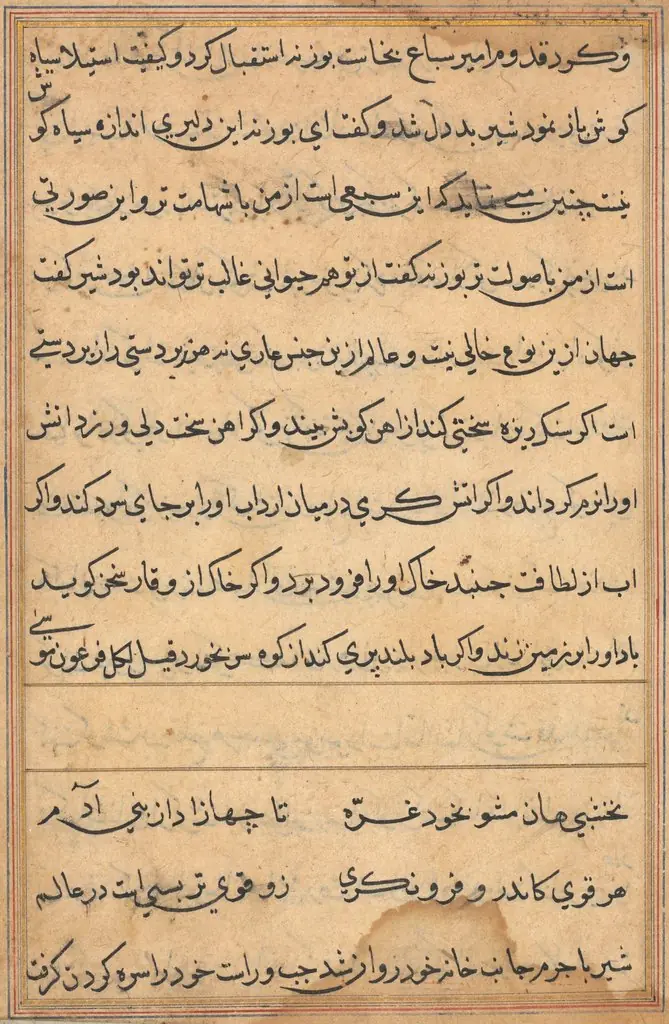 و کرد قدوم امیر سباع بخاست بوزنه استقبال کرد و کیفیت استیلا سیاه
کوش باز نمود شیر بد دل شد و کفت ای بوزنه این دلیری اندازه سیاه کوش
نیست چنین می نماید که این سبعی است از من با شهامت تر و این صورتی
است از من با صولت تر بوزنه کفت از تو هم حیوانی غالب تر تواند بود شیر کفت
جهان ازین نوع خالی نیست و عالم ازین جنس عاری نه هر زبردستی را زبردستی
است اکر سنک ریزه سختی کند از اهن کوبش بیند و اکر اهن سخت دلی ورزد اتش
او را نرم کرداند و اکر اتش کری در میان ارد اب او را بر جای سرد کند و اکر
اب از لطافت جنبد خاک او را فرود برد و اکر خاک از وقار سخن کوید
باد او را بر زمین زند و اکر باد بلند پری کند از کوه سر بخورد قیل لکل فرعون موسی
نخشبی هان مشو بخود غره تا چها زاد از بنی آدم
هر قوی کاندرو فرو نکری زو قوی تر بسی است در عالم
شیر با جرم جانب خانه خود روان شد چب و راست خود را سره کردن کرفت